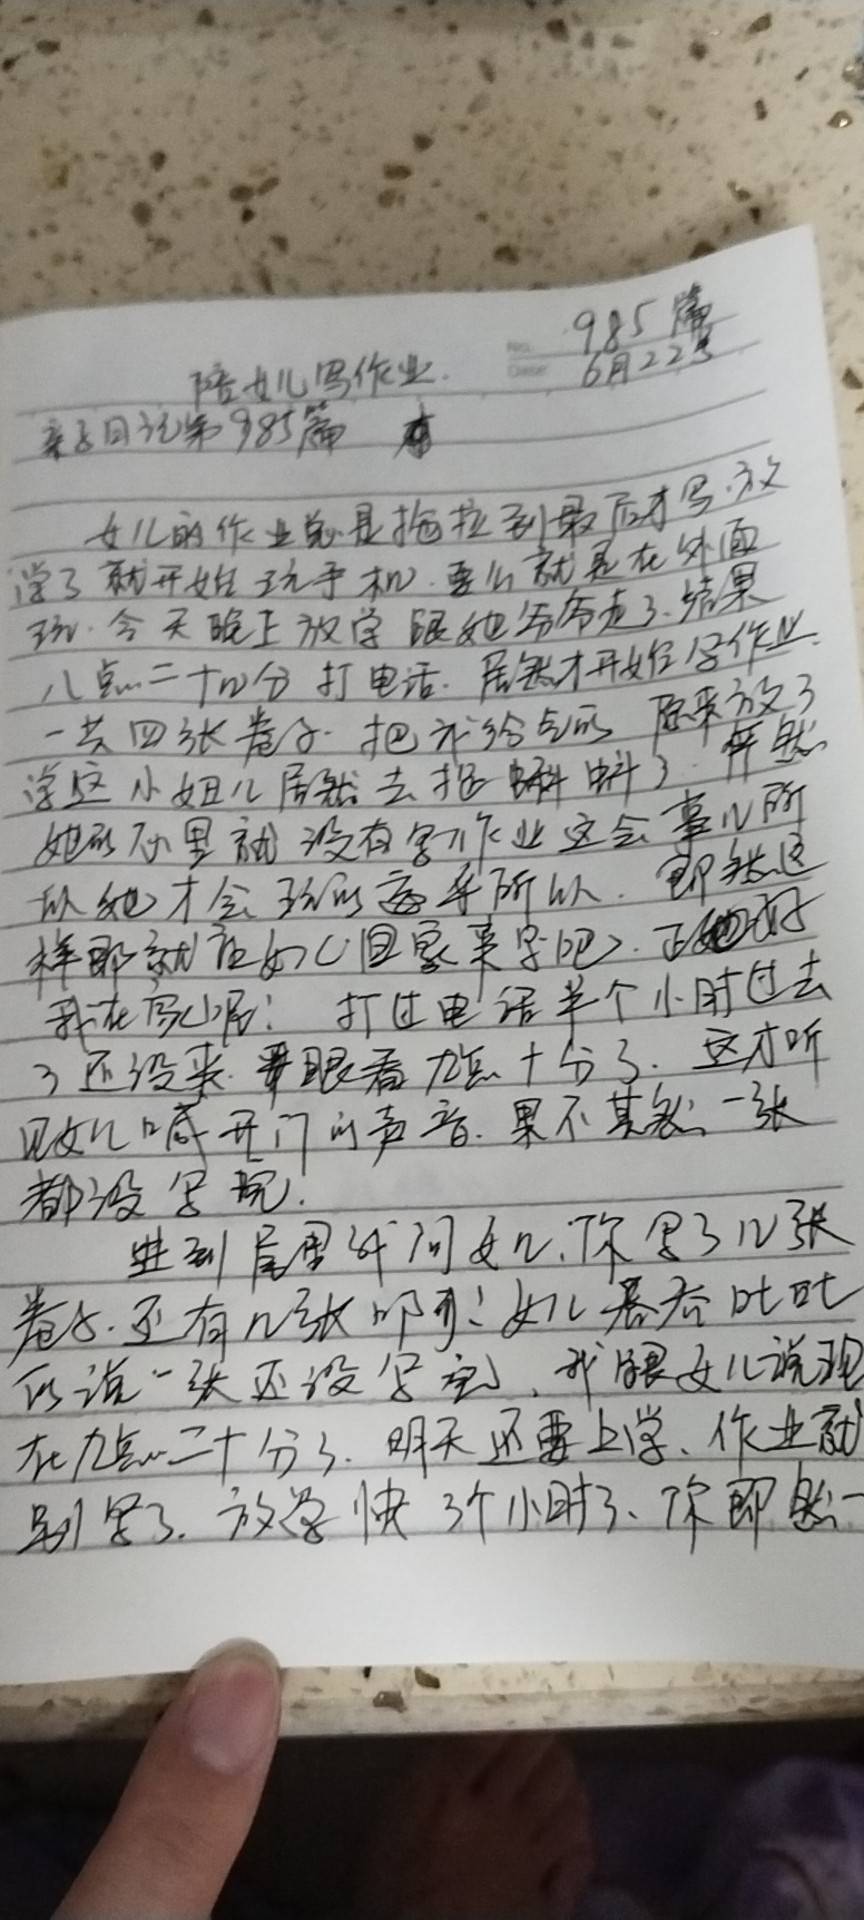 985篇
No.
Date.
6月22号
陪女儿写作业.
亲子日记第985篇
女儿的作业总是拖拉到最后才写.放
学了就开始玩手机.要么就是在外面
玩.今天晚上放学跟她爷爷走了.结果
八点二十四分打电话.居然才开始写作业.
一共四张卷子.把我给气的 原来放了
学这小妞儿居然去抓蝌蚪了.
她的心里就没有写作业这会事儿所
以她才会玩的 所以.即然这
样那就让女儿回家来写吧.
我在写小后! 打过电话半个小时过去
了还没来.眼看九点十分了.这才听
见女儿喊开门的声音.果不其然一张
都没写完.
进到屋里我问女儿.你写了几张
卷子.还有几张 女儿吞吞吐吐
的说一张还没写完.我跟女儿说现
在九点二十分了.明天还要上学、作业就
别写了.放学快3个小时了、你即然一